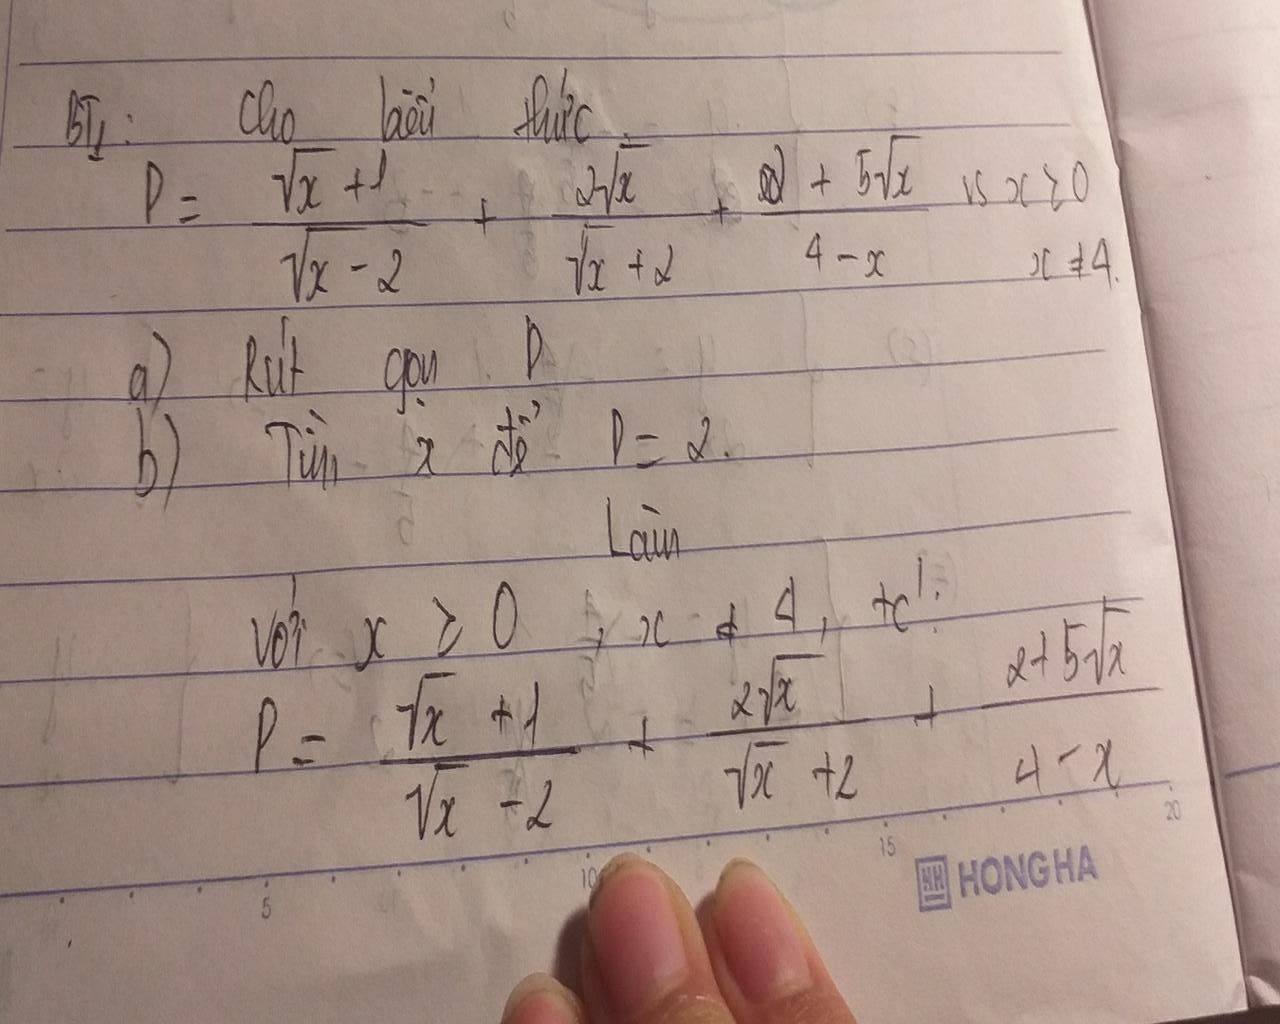 BT1: Cho biểu thức
P = (√x + 1)/(√x - 2) + 2√x/(√x + 2) + (2 + 5√x)/(4 - x) vs x ≥ 0
x ≠ 4.
a) Rút gọn P
b) Tìm x để P = 2.
Làm
Với x ≥ 0, x ≠ 4, tc':
P = (√x + 1)/(√x - 2) + 2√x/(√x + 2) + (2 + 5√x)/(4 - x)
5 10 15 20
HH HONG HA